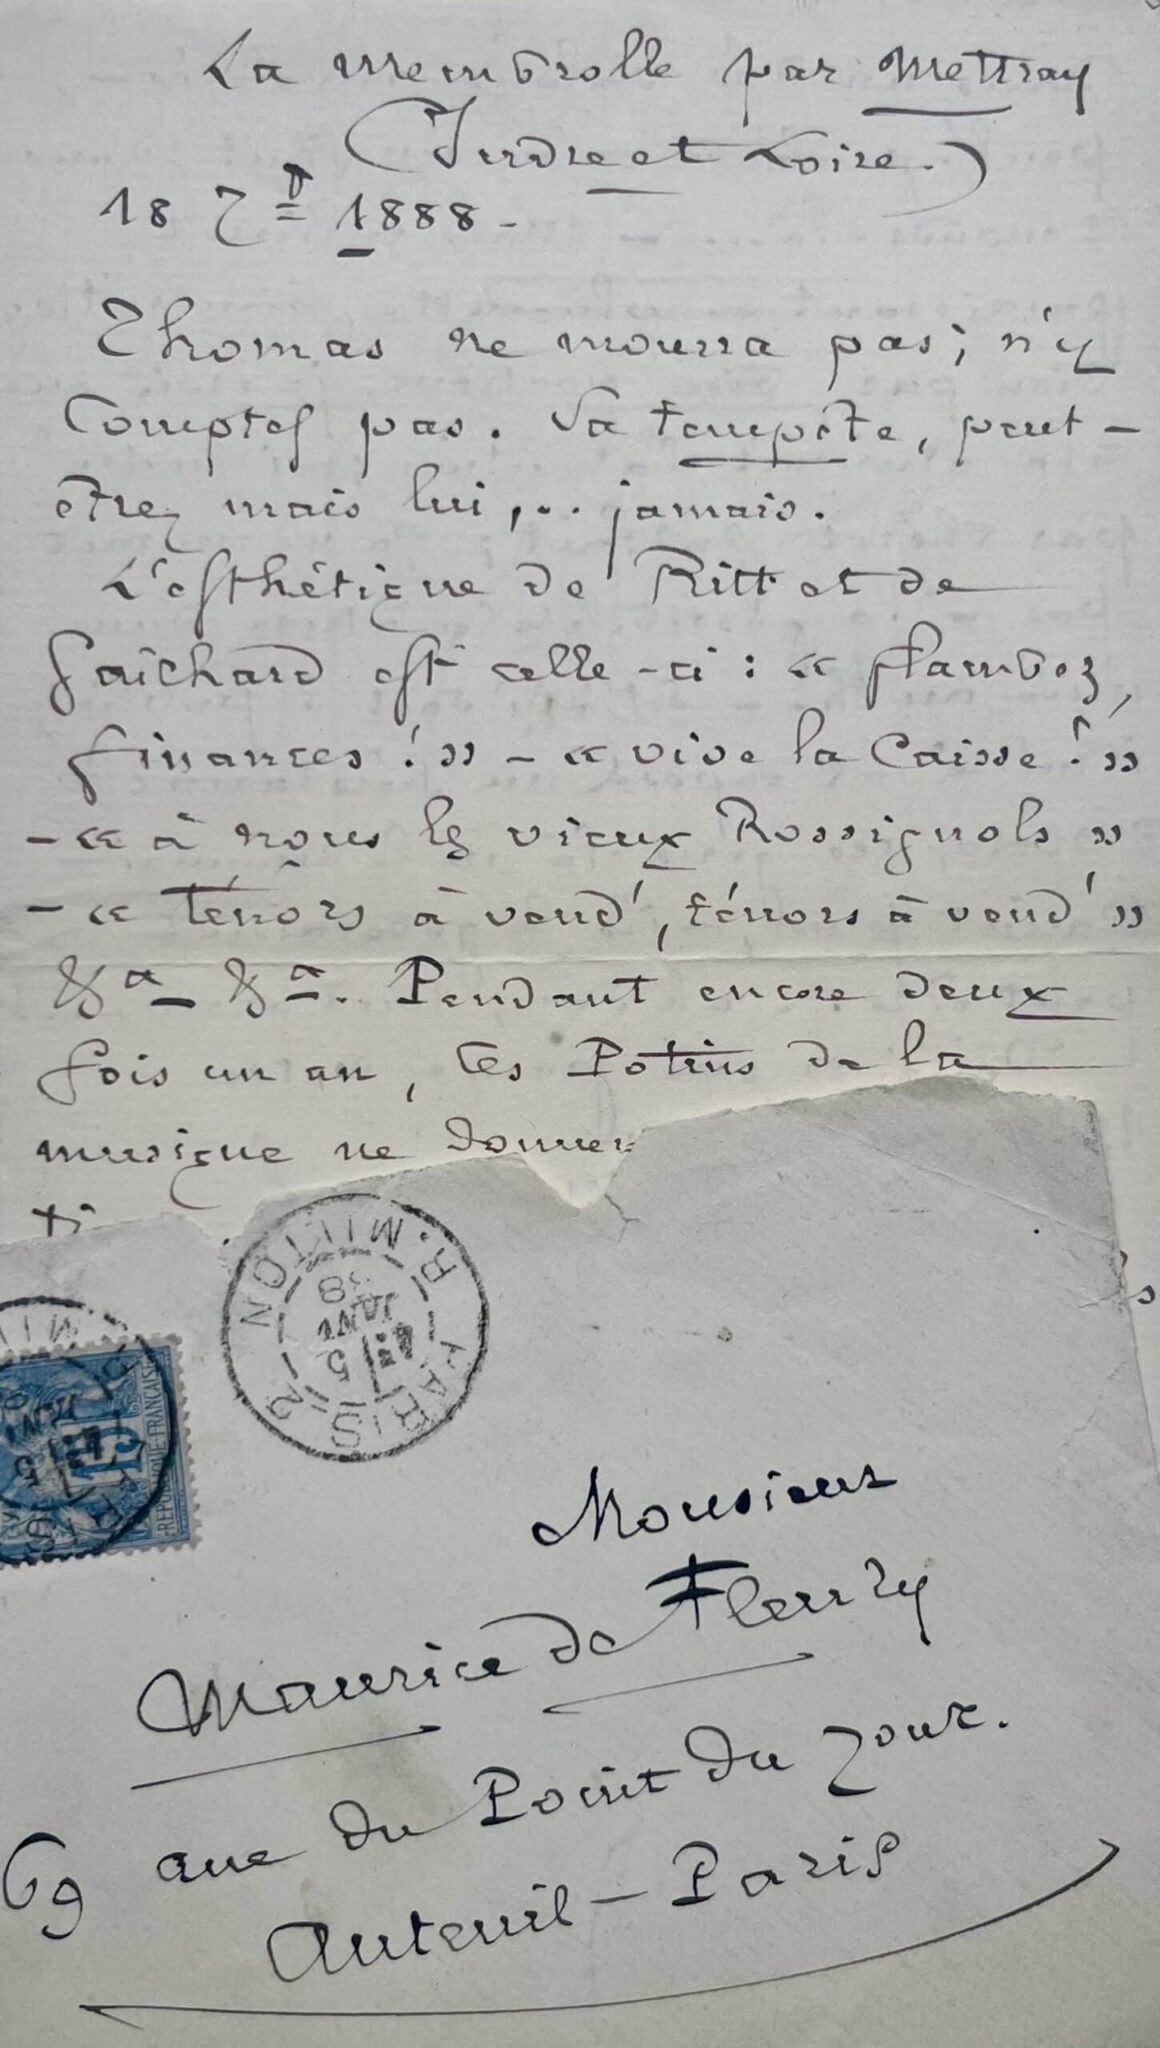 La Membrolle par Mettray
(Indre et Loire.)
18 7bre 1888 -
Thomas ne mourra pas; n'y
Comptes pas. Sa tempête, peut -
être, mais lui,... jamais.
L'esthétique de Ritt et de
Gaichard est celle-ci : « flambez,
finances ! » - « vive la Caisse ! »
- « à nous les vieux Rossignols »
- « Ténors à vend', ténors à vend' »
&a - &a. Pendant encore deux
fois un an, tes Potins de la
musique ne donner
PARIS 2
R. MILTON
5
JANV
88
15
REPUBLIQUE FRANÇAISE
Monsieur
Maurice de Fleury
69 rue du Point du Jour.
Auteuil - Paris